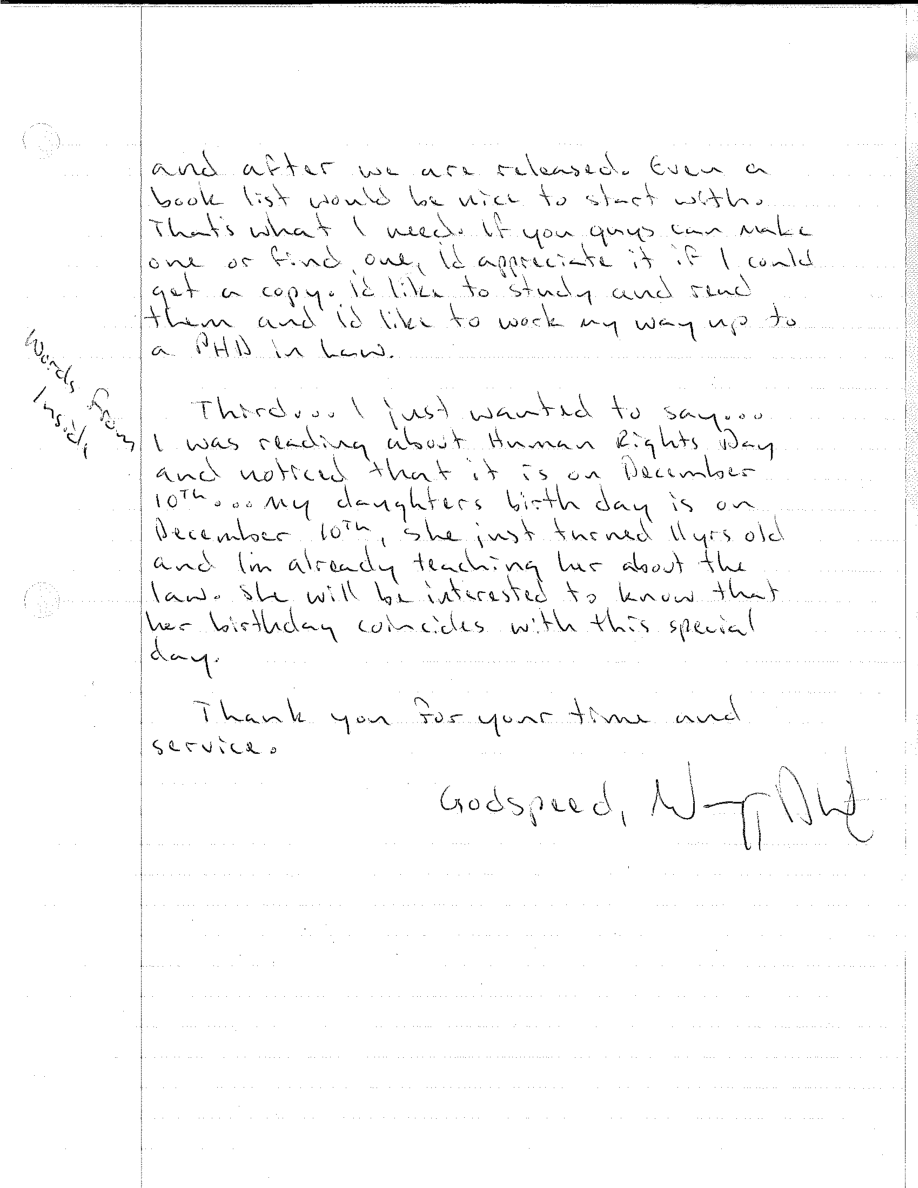 and after we are released. Even a
book list would be nice to start with.
Thats what I need. If you guys can make
one or find one, Id appreciate it if I could
get a copy. id like to study and read
them and id like to work my way up to
a PHD in Law.
Words from
Inside
Third... I just wanted to say...
I was reading about Human Rights Day
and noticed that it is on December
10TH... My daughters birth day is on
December 10TH, she just turned 11yrs old
and Im already teaching her about the
law. She will be interested to know that
her birthday coincides with this special
day.
Thank you for your time and
service.
Godspeed,